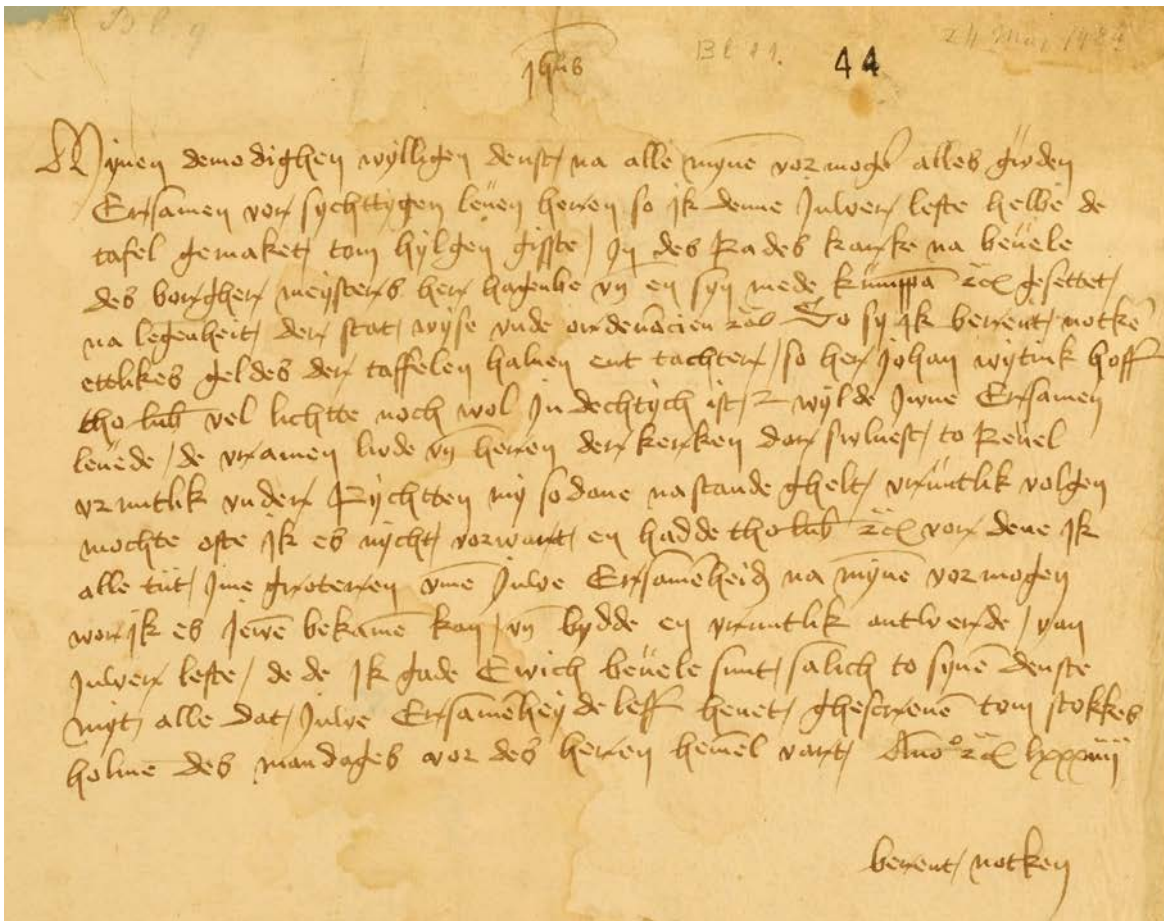 Bl. 9
Bl 11. 44 24 May 1484
Jhüs
Mynen demodighen wylligen denst, na alle myne vor moge alles guden
Ersamen vor sychttygen leuen heren so ik denne Juwer lefte hebbe de
tafel gemaket, tom hylgen gisste, In des Rades karke na beuele
des borgher meysters her hagenbe vn en syn mede kumppā gesettet,
na legenheit, der stat, wyse vnde ordenācien So sy ik berent, notkē
ettlikes geldes der taffelen haluen ent tachter, so her Johan wytink hoff
tho lub vel lichtte noch wol In dechtych ist, wylde Juwe Ersamen
leuede, de vramen lude vn heren der kerken dar suluest, to Reuel
vruntlik vnder Rychtten my so dane na stande ghelt, vruntlik volgen
mochte ofte ik es nycht, vorwart, en hadde tho lub vor dene ik
alle tüt, Jme groteren vme Juwe Ersamēheid na myne vor mogen
wor ik es Jewē bekamē kan, vn bydde en vruntlik antwerde, van
Juwer lefte, de de Ik gade Ewich beuele sunt, salich to synē denste
myt, alle dat, Juwe Ersamēhey de leff heuet, ghescreuē tom stokkes
holme des mandages vor des heren hemel vart, Ano lxxxiiii
berent, notken